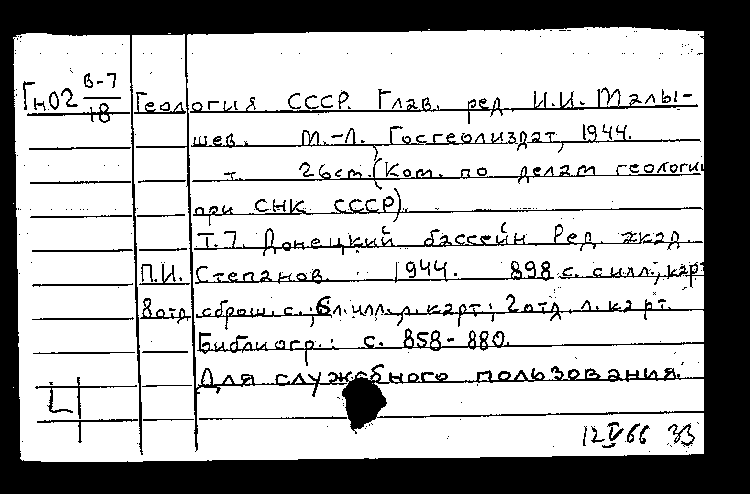 Гн02 В-7/18 Геология СССР. Глав. ред. И.И. Малы-
шев. М.-Л., Госгеолиздат, 1944.
т. 26см. (Ком. по делам геологии
при СНК СССР).
Т.7. Донецкий бассейн Ред. акад.
П.И. Степанов. 1944. 898 с. с илл., карт
8 отд. сброш. с.; 6 л. илл. карт; 2 отд. л. карт.
Библиогр.: с. 858-880.
Для служебного пользования.
Ц
12 IV 66 ЗЗ